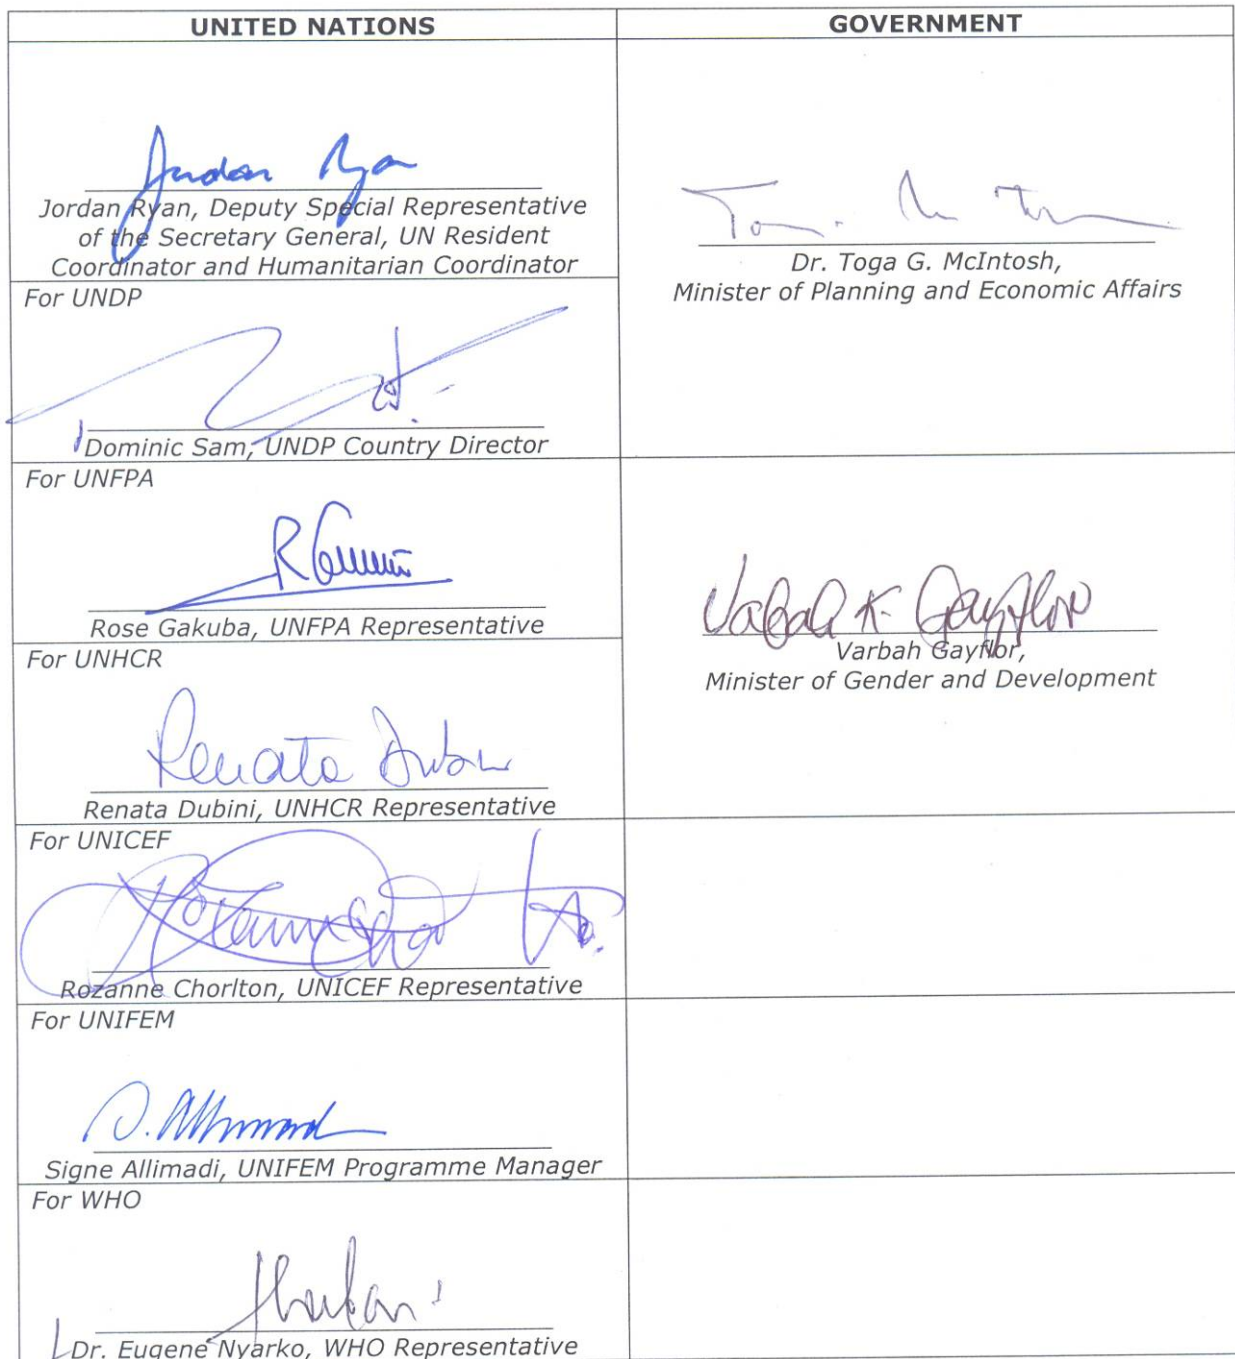 UNITED NATIONS
GOVERNMENT
Jordan Ryan
Jordan Ryan, Deputy Special Representative
of the Secretary General, UN Resident
Coordinator and Humanitarian Coordinator
Dr. Toga G. McIntosh,
Minister of Planning and Economic Affairs
For UNDP
Dominic Sam, UNDP Country Director
For UNFPA
Rose Gakuba, UNFPA Representative
Varbah K. Gayflor
Varbah Gayflor,
Minister of Gender and Development
For UNHCR
Renata Dubini
Renata Dubini, UNHCR Representative
For UNICEF
Rozanne Chorlton, UNICEF Representative
For UNIFEM
Signe Allimadi, UNIFEM Programme Manager
For WHO
Dr. Eugene Nyarko, WHO Representative